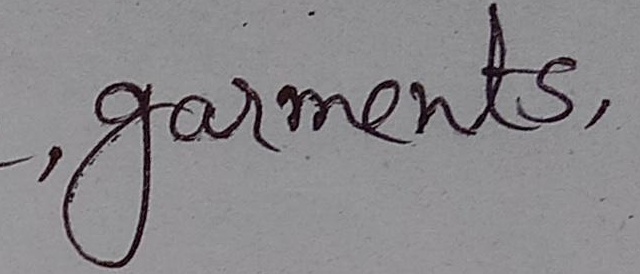 , garments,